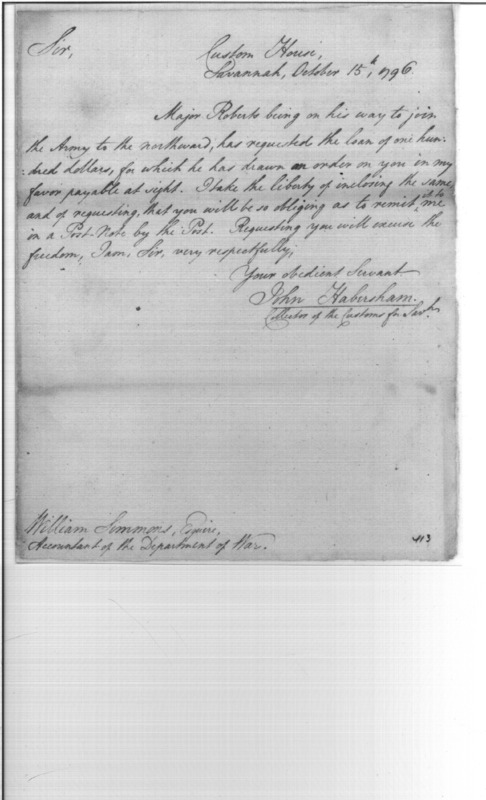 Sir,
Custom House,
Savannah, October 15th, 1796.
Major Roberts being on his way to join
the Army to the northward, has requested the loan of one hun-
-dred dollars, for which he has drawn an order on you in my
favor payable at sight. I take the liberty of inclosing the same,
and of requesting, that you will be so obliging as to remit it to me
in a Post-Note by the Post. Requesting you will excuse the
freedom, I am, Sir, very respectfully,
Your obedient Servant
John Habersham.
Collector of the Customs for Savh.
William Simmons, Esquire,
Accountant of the Department of War.
413